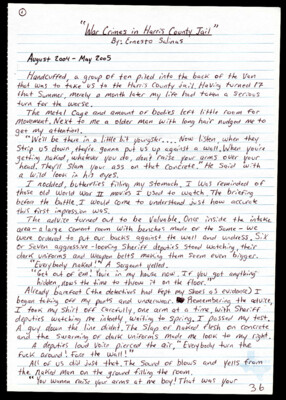 ①
"War Crimes in Harris County Jail"
By: Ernesto Salinas
August 2004 - May 2005
Handcuffed, a group of ten piled into the back of the Van
that was to take us to the Harris County Jail. Having turned 17
that Summer, merely a month later my life had taken a serious
turn for the worse.
The metal Cage and amount of bodies left little room for
movement. Next to me a older man with long hair nudged me to
get my attention.
"We'll be there in a little bit youngster.... Now listen, when they
Strip us down, they're gonna put us up against a wall. When you're
getting naked, whatever you do, don't raise your arms over your
head. They'll Slam your ass on that Concrete." He said with
a wild look in his eyes.
I nodded, butterflies filling my stomach. I was reminded of
those old World War II movies I used to watch. The briefing
before the battle. I would come to understand just how accurate
this first impression was.
The advice turned out to be Valuable. Once inside the intake
area - a large cement room with benches made of the same - we
were ordered to put our backs against the wall and undress. Six
or Seven aggressive-looking Sheriff deputies stood watching, their
dark uniforms and weapon belts making them seem even bigger.
"Everybody naked!" A Sergeant yelled.
"Get out of em! You're in my house now. If you got anything
hidden, now's the time to throw it on the floor."
Already barefoot (the detectives had kept my shoes as evidence) I
began taking off my pants and underwear. Remembering the advice,
I took my shirt off carefully, one arm at a time. With Sheriff
deputies watching me intently, waiting to Spring, I passed my test.
A guy down the line didnt. The Slap of naked flesh on concrete
and the Swarming of dark uniforms made me look to my right.
A deputies loud voice pierced the air, "Everybody turn the
fuck around! Face the wall!"
All of us did just that. The Sound of blows and yells from
the naked man on the ground filling the room.
"You wanna raise your arms at me boy! That was your
36